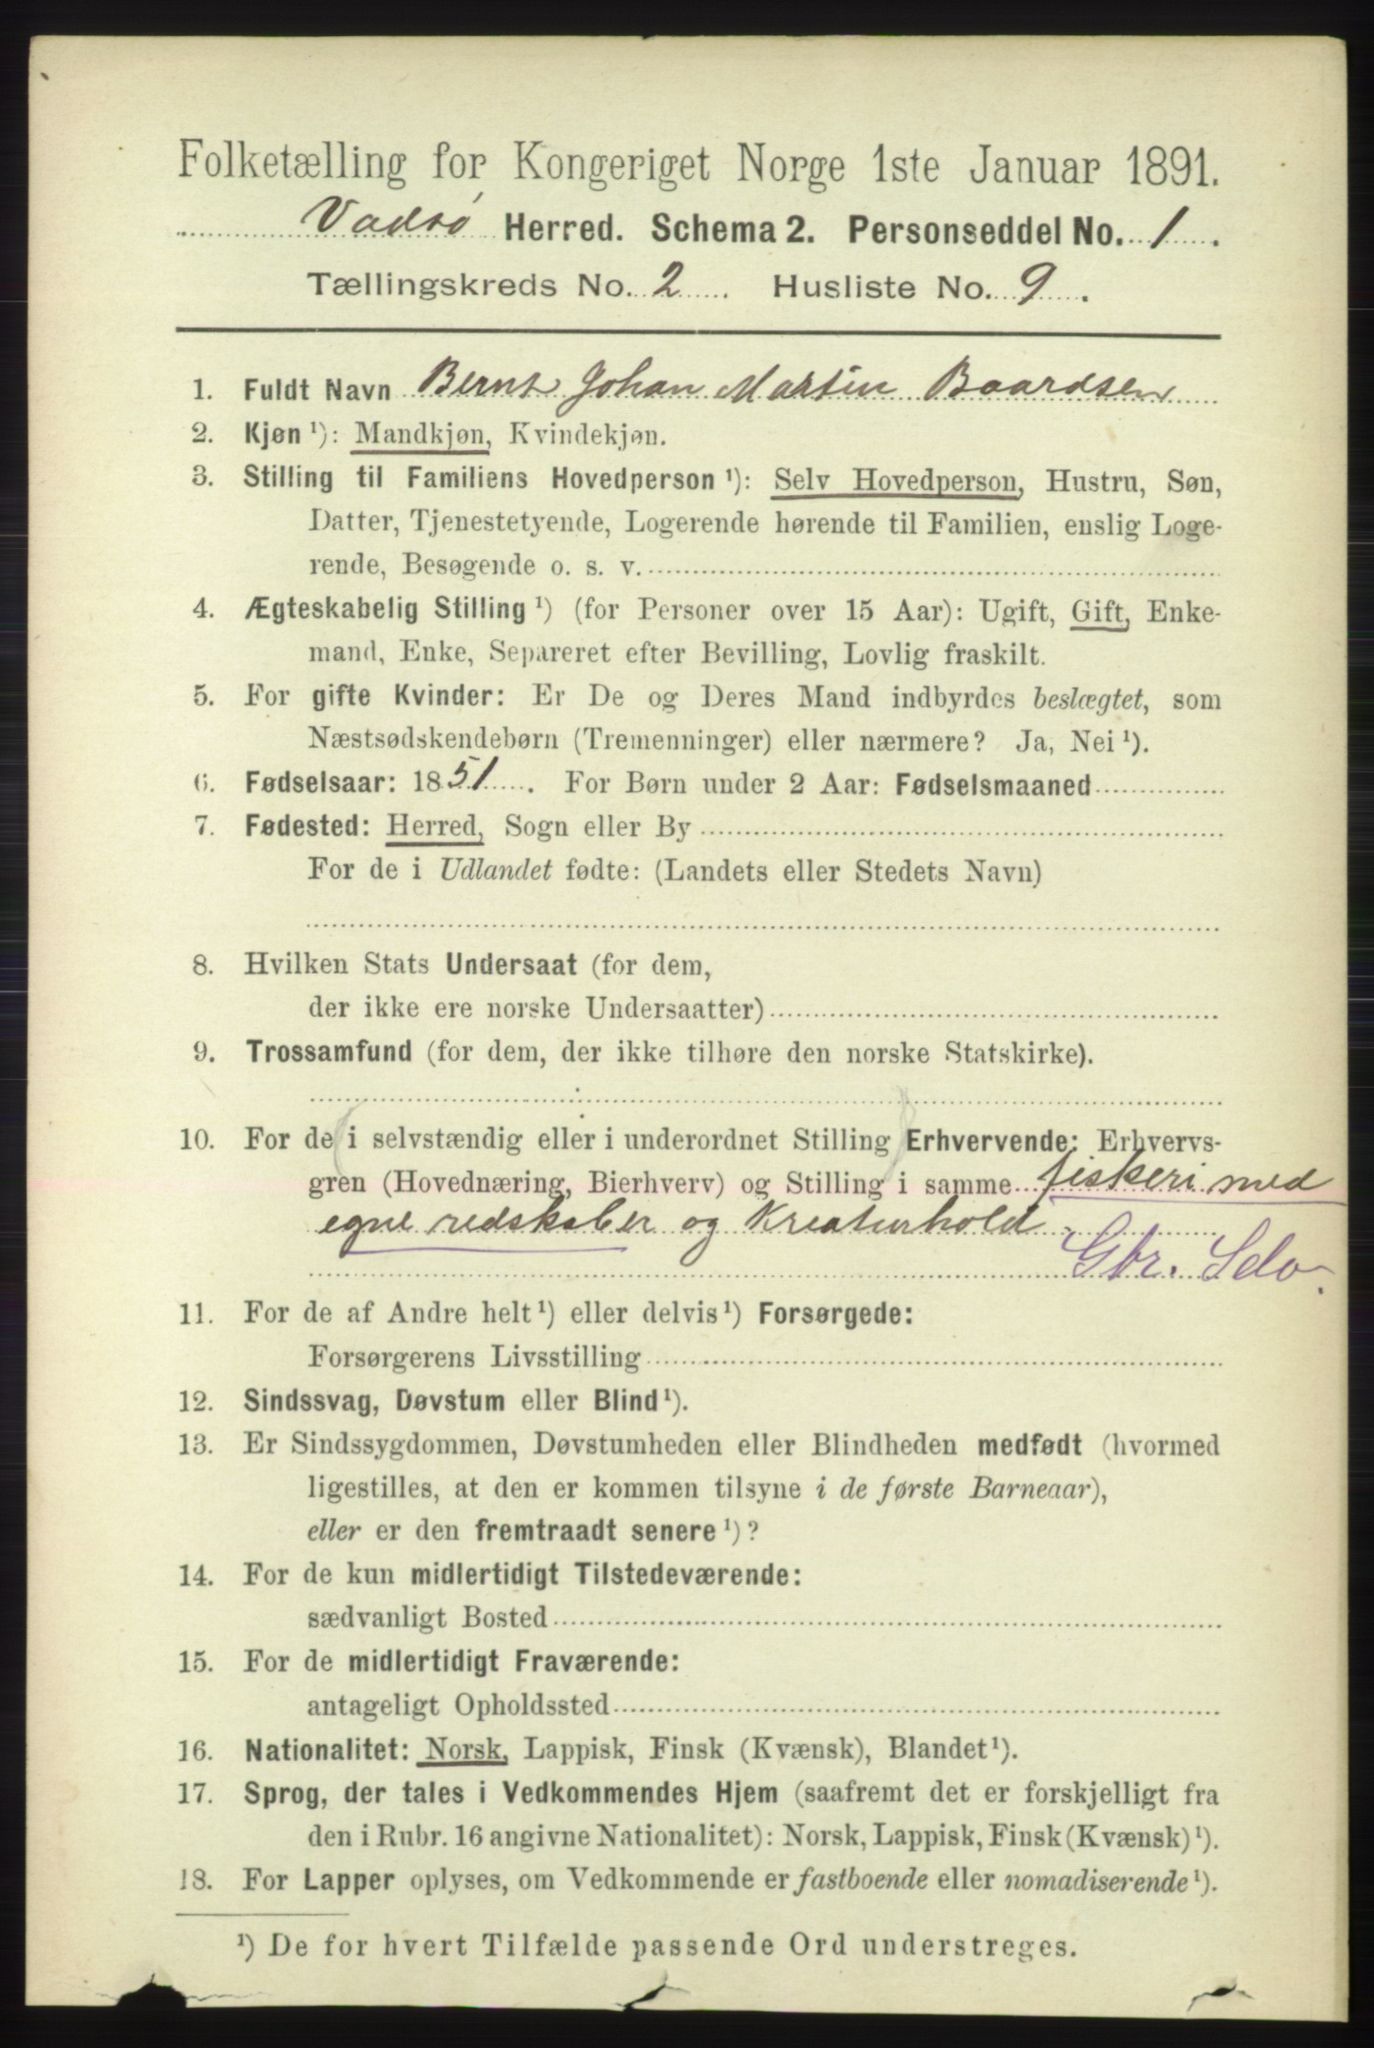 Folketælling for Kongeriget Norge 1ste Januar 1891.
Vadsø Herred. Schema 2. Personseddel No. 1.
Tællingskreds No. 2 Husliste No. 9.
1. Fuldt Navn Bernt Johan Martin Baardsen
2. Kjøn ¹): Mandkjøn, Kvindekjøn.
3. Stilling til Familiens Hovedperson ¹): Selv Hovedperson, Hustru, Søn,
Datter, Tjenestetyende, Logerende hørende til Familien, enslig Loge-
rende, Besøgende o. s. v.
4. Ægteskabelig Stilling ¹) (for Personer over 15 Aar): Ugift, Gift, Enke-
mand, Enke, Separeret efter Bevilling, Lovlig fraskilt.
5. For gifte Kvinder: Er De og Deres Mand indbyrdes beslægtet, som
Næstsødskendebørn (Tremenninger) eller nærmere? Ja, Nei ¹).
6. Fødselsaar: 1851. For Børn under 2 Aar: Fødselsmaaned
7. Fødested: Herred, Sogn eller By
For de i Udlandet fødte: (Landets eller Stedets Navn)
8. Hvilken Stats Undersaat (for dem,
der ikke ere norske Undersaatter)
9. Trossamfund (for dem, der ikke tilhøre den norske Statskirke).
10. For de i selvstændig eller i underordnet Stilling Erhvervende: Erhvervs-
gren (Hovednæring, Bierhverv) og Stilling i samme fiskeri med
egne redskaber og Kreaturhold
Gbr. Selv.
11. For de af Andre helt ¹) eller delvis ¹) Forsørgede:
Forsørgerens Livsstilling
12. Sindssvag, Døvstum eller Blind ¹).
13. Er Sindssygdommen, Døvstumheden eller Blindheden medfødt (hvormed
ligestilles, at den er kommen tilsyne i de første Barneaar),
eller er den fremtraadt senere ¹)?
14. For de kun midlertidigt Tilstedeværende:
sædvanligt Bosted
15. For de midlertidigt Fraværende:
antageligt Opholdssted
16. Nationalitet: Norsk, Lappisk, Finsk (Kvænsk), Blandet ¹).
17. Sprog, der tales i Vedkommendes Hjem (saafremt det er forskjelligt fra
den i Rubr. 16 angivne Nationalitet): Norsk, Lappisk, Finsk (Kvænsk) ¹).
18. For Lapper oplyses, om Vedkommende er fastboende eller nomadiserende ¹).
¹) De for hvert Tilfælde passende Ord understreges.